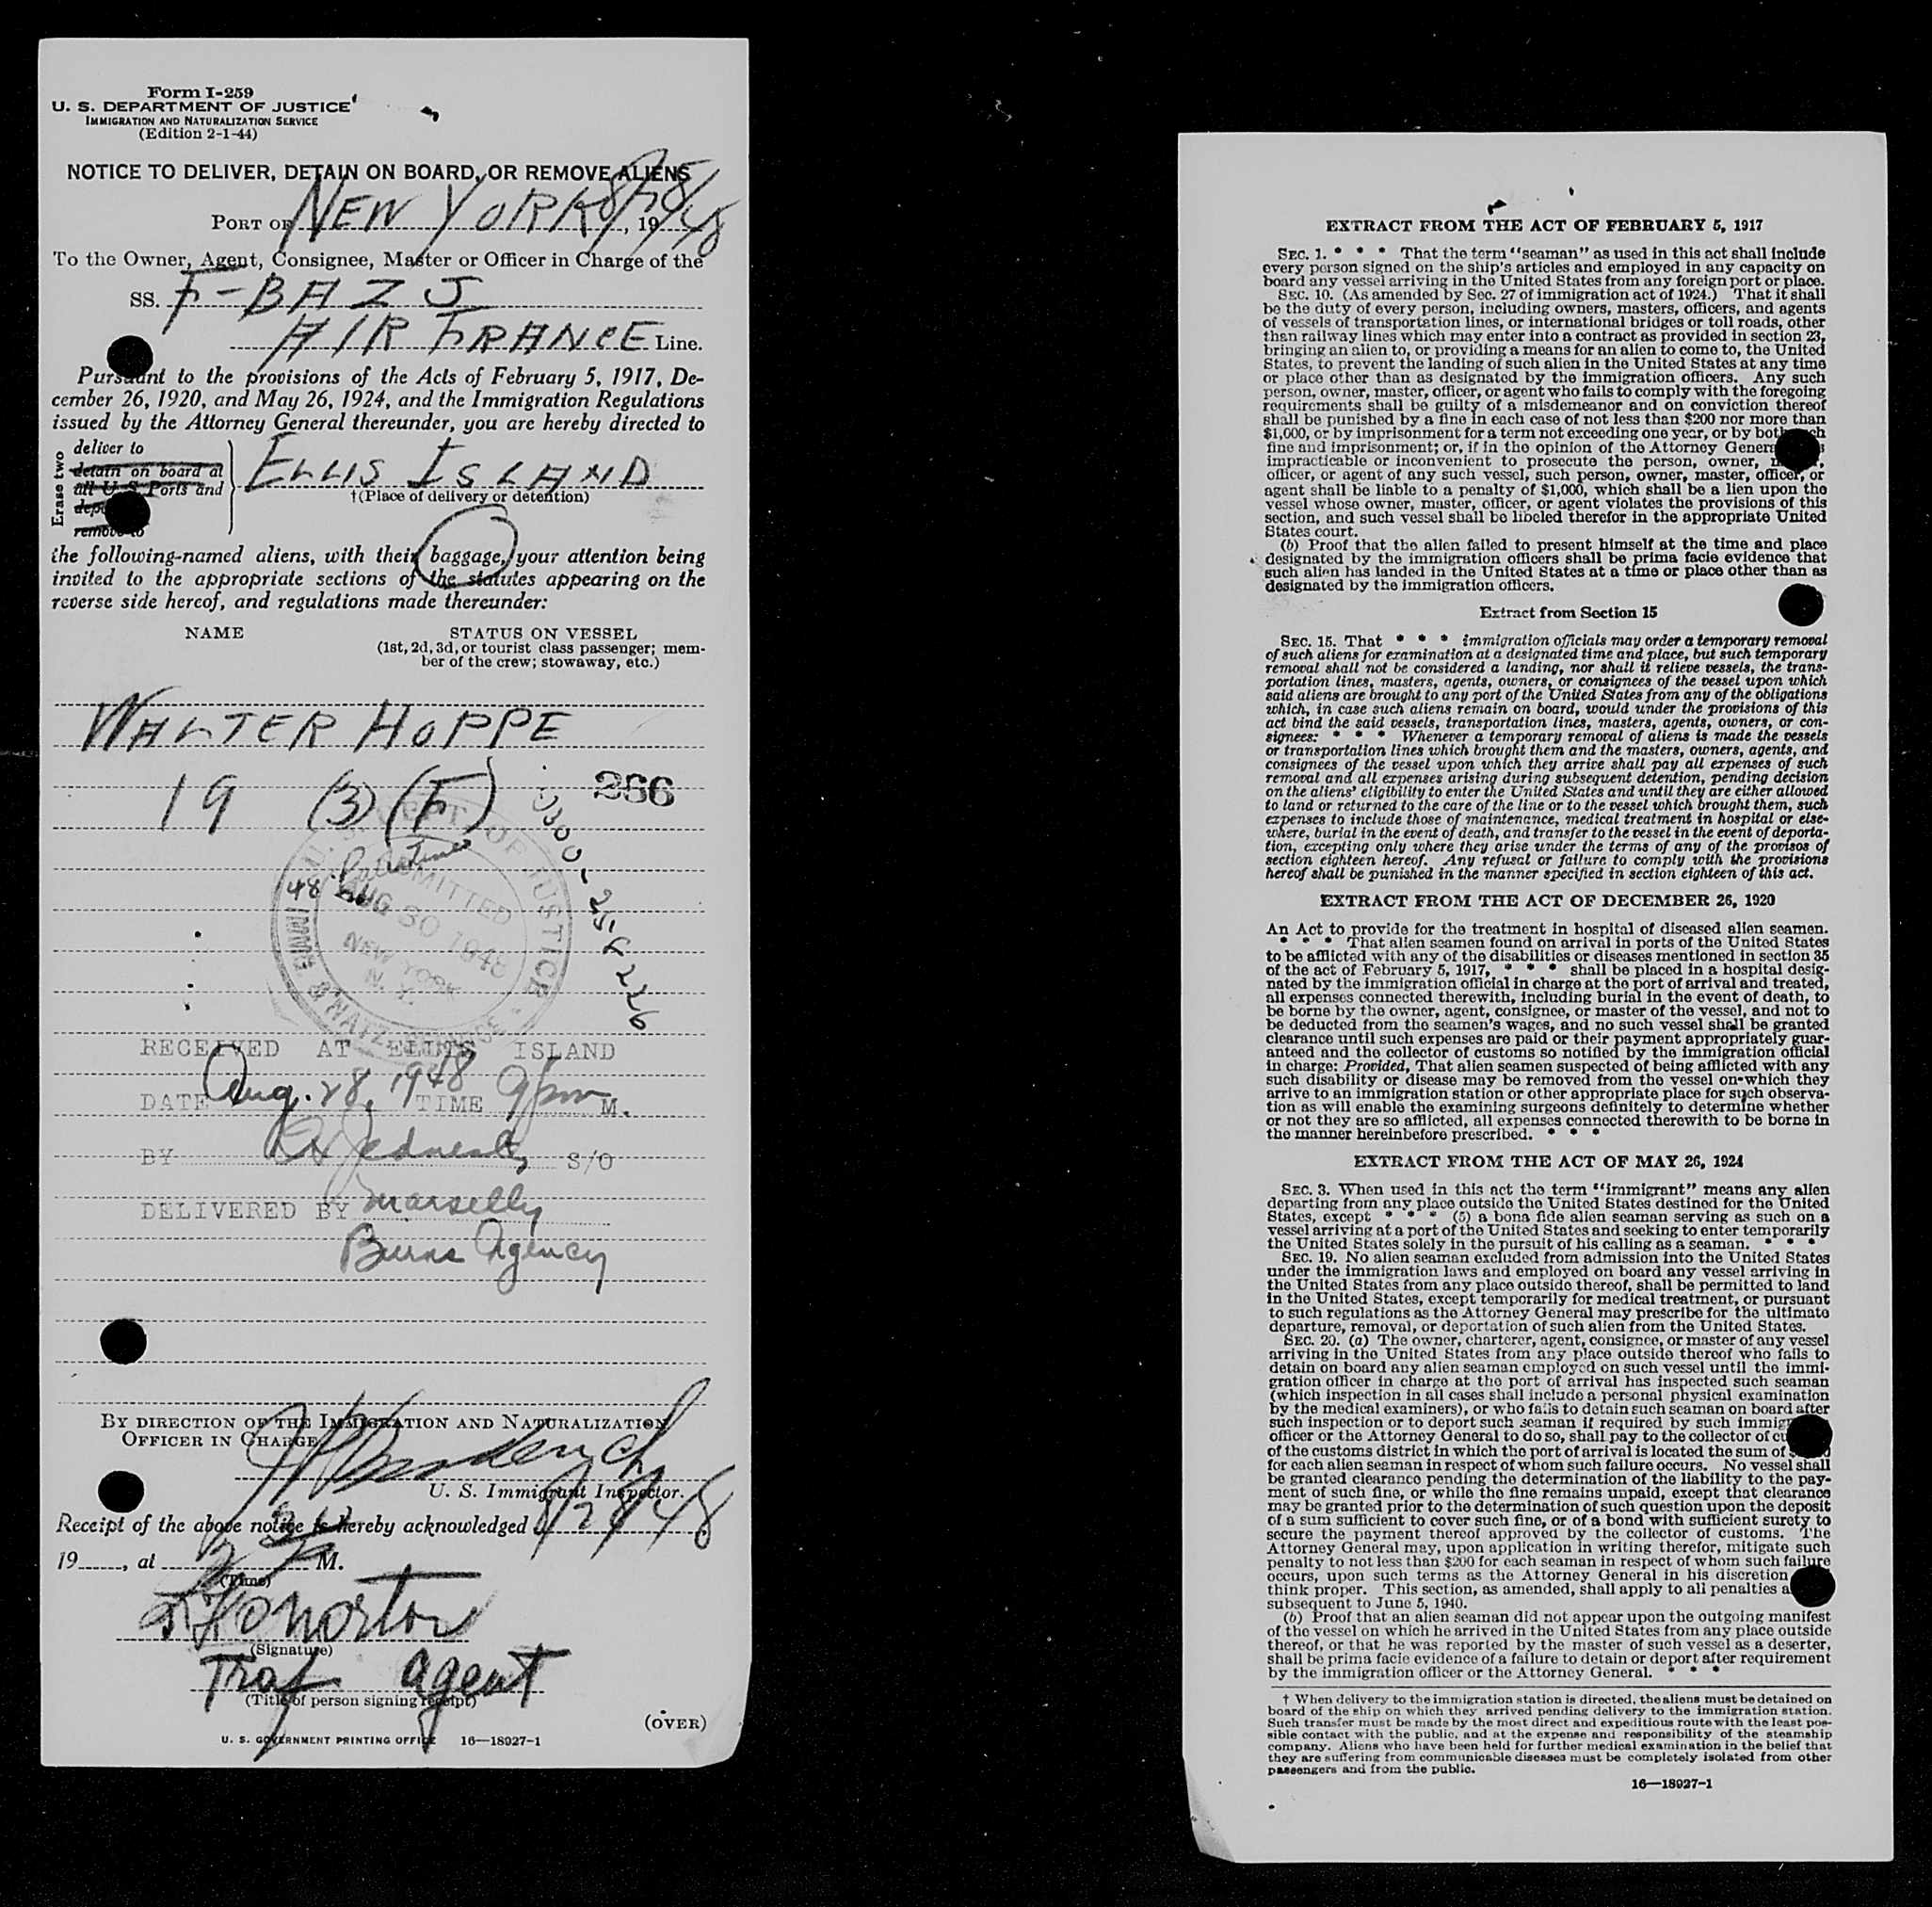 Form I-259
U. S. DEPARTMENT OF JUSTICE
IMMIGRATION AND NATURALIZATION SERVICE
(Edition 2-1-44)
NOTICE TO DELIVER, DETAIN ON BOARD, OR REMOVE ALIENS
PORT OF NEW YORK 8/28/48, 19
To the Owner, Agent, Consignee, Master or Officer in Charge of the
SS. F-BAZJ
AIR FRANCE Line.
Pursuant to the provisions of the Acts of February 5, 1917, De-
cember 26, 1920, and May 26, 1924, and the Immigration Regulations
issued by the Attorney General thereunder, you are hereby directed to
Erase two
deliver to
detain on board at
all U S Ports and
remove to
ELLIS ISLAND
†(Place of delivery or detention)
the following-named aliens, with their baggage, your attention being
invited to the appropriate sections of the statutes appearing on the
reverse side hereof, and regulations made thereunder:
NAME
STATUS ON VESSEL
(1st, 2d, 3d, or tourist class passenger; mem-
ber of the crew; stowaway, etc.)
WALTER HOPPE
19 (3) (F)
266
ADMITTED
AUG 30 1948
NEW YORK
N. Y.
RECEIVED AT ELLIS ISLAND
DATE Aug. 28, 1948 TIME 9 pm M.
BY S/O
DELIVERED BY Marselly
Burns Agency
BY DIRECTION OF THE IMMIGRATION AND NATURALIZATION
OFFICER IN CHARGE
U. S. Immigrant Inspector.
Receipt of the above notice is hereby acknowledged 8/28/48,
19, at M.
(Time)
Norton
(Signature)
Traf agent
(Title of person signing receipt)
(OVER)
U. S. GOVERNMENT PRINTING OFFICE 16—18927-1
EXTRACT FROM THE ACT OF FEBRUARY 5, 1917
SEC. 1. * * * That the term "seaman" as used in this act shall include
every person signed on the ship's articles and employed in any capacity on
board any vessel arriving in the United States from any foreign port or place.
SEC. 10. (As amended by Sec. 27 of immigration act of 1924.) That it shall
be the duty of every person, including owners, masters, officers, and agents
of vessels of transportation lines, or international bridges or toll roads, other
than railway lines which may enter into a contract as provided in section 23,
bringing an alien to, or providing a means for an alien to come to, the United
States, to prevent the landing of such alien in the United States at any time
or place other than as designated by the immigration officers. Any such
person, owner, master, officer, or agent who fails to comply with the foregoing
requirements shall be guilty of a misdemeanor and on conviction thereof
shall be punished by a fine in each case of not less than $200 nor more than
$1,000, or by imprisonment for a term not exceeding one year, or by both such
fine and imprisonment; or, if in the opinion of the Attorney General
impracticable or inconvenient to prosecute the person, owner,
officer, or agent of any such vessel, such person, owner, master, officer, or
agent shall be liable to a penalty of $1,000, which shall be a lien upon the
vessel whose owner, master, officer, or agent violates the provisions of this
section, and such vessel shall be libeled therefor in the appropriate United
States court.
(b) Proof that the alien failed to present himself at the time and place
designated by the immigration officers shall be prima facie evidence that
such alien has landed in the United States at a time or place other than as
designated by the immigration officers.
Extract from Section 15
SEC. 15. That * * * immigration officials may order a temporary removal
of such aliens for examination at a designated time and place, but such temporary
removal shall not be considered a landing, nor shall it relieve vessels, the trans-
portation lines, masters, agents, owners, or consignees of the vessel upon which
said aliens are brought to any port of the United States from any of the obligations
which, in case such aliens remain on board, would under the provisions of this
act bind the said vessels, transportation lines, masters, agents, owners, or con-
signees: * * * Whenever a temporary removal of aliens is made the vessels
or transportation lines which brought them and the masters, owners, agents, and
consignees of the vessel upon which they arrive shall pay all expenses of such
removal and all expenses arising during subsequent detention, pending decision
on the aliens' eligibility to enter the United States and until they are either allowed
to land or returned to the care of the line or to the vessel which brought them, such
expenses to include those of maintenance, medical treatment in hospital or else-
where, burial in the event of death, and transfer to the vessel in the event of deporta-
tion, excepting only where they arise under the terms of any of the provisos of
section eighteen hereof. Any refusal or failure to comply with the provisions
hereof shall be punished in the manner specified in section eighteen of this act.
EXTRACT FROM THE ACT OF DECEMBER 26, 1920
An Act to provide for the treatment in hospital of diseased alien seamen.
* * * That alien seamen found on arrival in ports of the United States
to be afflicted with any of the disabilities or diseases mentioned in section 35
of the act of February 5, 1917, * * * shall be placed in a hospital desig-
nated by the immigration official in charge at the port of arrival and treated,
all expenses connected therewith, including burial in the event of death, to
be borne by the owner, agent, consignee, or master of the vessel, and not to
be deducted from the seamen's wages, and no such vessel shall be granted
clearance until such expenses are paid or their payment appropriately guar-
anteed and the collector of customs so notified by the immigration official
in charge: Provided, That alien seamen suspected of being afflicted with any
such disability or disease may be removed from the vessel on which they
arrive to an immigration station or other appropriate place for such observa-
tion as will enable the examining surgeons definitely to determine whether
or not they are so afflicted, all expenses connected therewith to be borne in
the manner hereinbefore prescribed. * * *
EXTRACT FROM THE ACT OF MAY 26, 1924
SEC. 3. When used in this act the term "immigrant" means any alien
departing from any place outside the United States destined for the United
States, except * * * (5) a bona fide alien seaman serving as such on a
vessel arriving at a port of the United States and seeking to enter temporarily
the United States solely in the pursuit of his calling as a seaman. * * *
SEC. 19. No alien seaman excluded from admission into the United States
under the immigration laws and employed on board any vessel arriving in
the United States from any place outside thereof, shall be permitted to land
in the United States, except temporarily for medical treatment, or pursuant
to such regulations as the Attorney General may prescribe for the ultimate
departure, removal, or deportation of such alien from the United States.
SEC. 20. (a) The owner, charterer, agent, consignee, or master of any vessel
arriving in the United States from any place outside thereof who fails to
detain on board any alien seaman employed on such vessel until the immi-
gration officer in charge at the port of arrival has inspected such seaman
(which inspection in all cases shall include a personal physical examination
by the medical examiners), or who fails to detain such seaman on board after
such inspection or to deport such seaman if required by such
officer or the Attorney General to do so, shall pay to the collector of
of the customs district in which the port of arrival is located the sum of
for each alien seaman in respect of whom such failure occurs. No vessel shall
be granted clearance pending the determination of the liability to the pay-
ment of such fine, or while the fine remains unpaid, except that clearance
may be granted prior to the determination of such question upon the deposit
of a sum sufficient to cover such fine, or of a bond with sufficient surety to
secure the payment thereof approved by the collector of customs. The
Attorney General may, upon application in writing therefor, mitigate such
penalty to not less than $200 for each seaman in respect of whom such failure
occurs, upon such terms as the Attorney General in his discretion
think proper. This section, as amended, shall apply to all penalties
subsequent to June 5, 1940.
(b) Proof that an alien seaman did not appear upon the outgoing manifest
of the vessel on which he arrived in the United States from any place outside
thereof, or that he was reported by the master of such vessel as a deserter,
shall be prima facie evidence of a failure to detain or deport after requirement
by the immigration officer or the Attorney General. * * *
† When delivery to the immigration station is directed, the aliens must be detained on
board of the ship on which they arrived pending delivery to the immigration station.
Such transfer must be made by the most direct and expeditious route with the least pos-
sible contact with the public, and at the expense and responsibility of the steamship
company. Aliens who have been held for further medical examination in the belief that
they are suffering from communicable diseases must be completely isolated from other
passengers and from the public.
16—18927-1